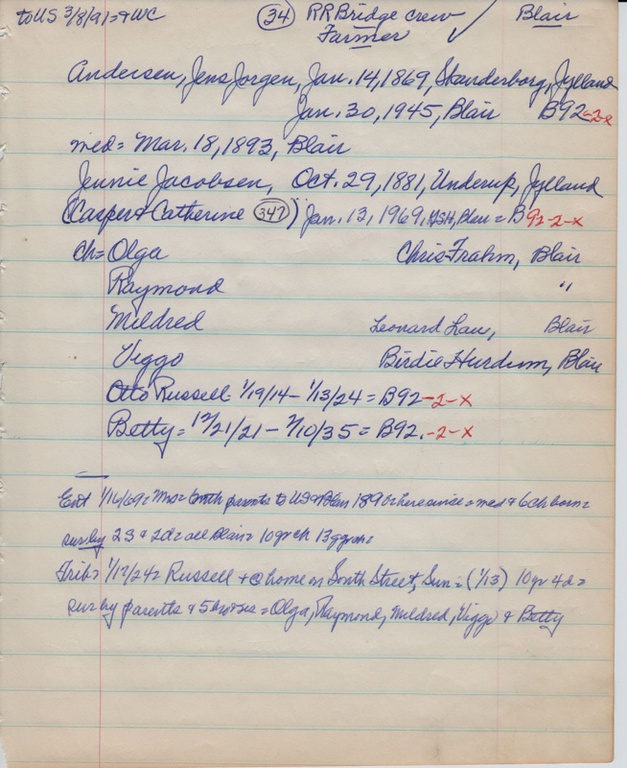 to US 3/8/91 = 9 WC (34) RR Bridge crew Blair
Farmer ✓
Andersen, Jens Jorgen, Jan. 14, 1869, Skanderborg, Jylland
Jan. 30, 1945, Blair B92-2-x
med = Mar. 18, 1893, Blair
Jennie Jacobsen, Oct. 29, 1881, Underup, Jylland
(Casper & Catherine (347)) Jan. 13, 1969, Blair = B92-2-x
ch = Olga Chris Frahm, Blair
Raymond "
Mildred Leonard Lau, Blair
Viggo Birdie Hurdum, Blair
Otto Russell - 1/19/14 - 1/13/24 = B92-2-x
Betty = 12/21/21 - 7/10/35 = B92.-2-x
Ent 1/16/69 = Mrs = parents to US & Blair 189 here since = med & 6 ch born =
surby 2S & 2d = all Blair = 10 gr ch 13 ggrch =
Trib = 1/17/24 = Russell + @ home on South Street, Sun = (1/13) 10 yr 4 d =
sur by parents & 5 bro & sis = Olga, Raymond, Mildred, Viggo & Betty